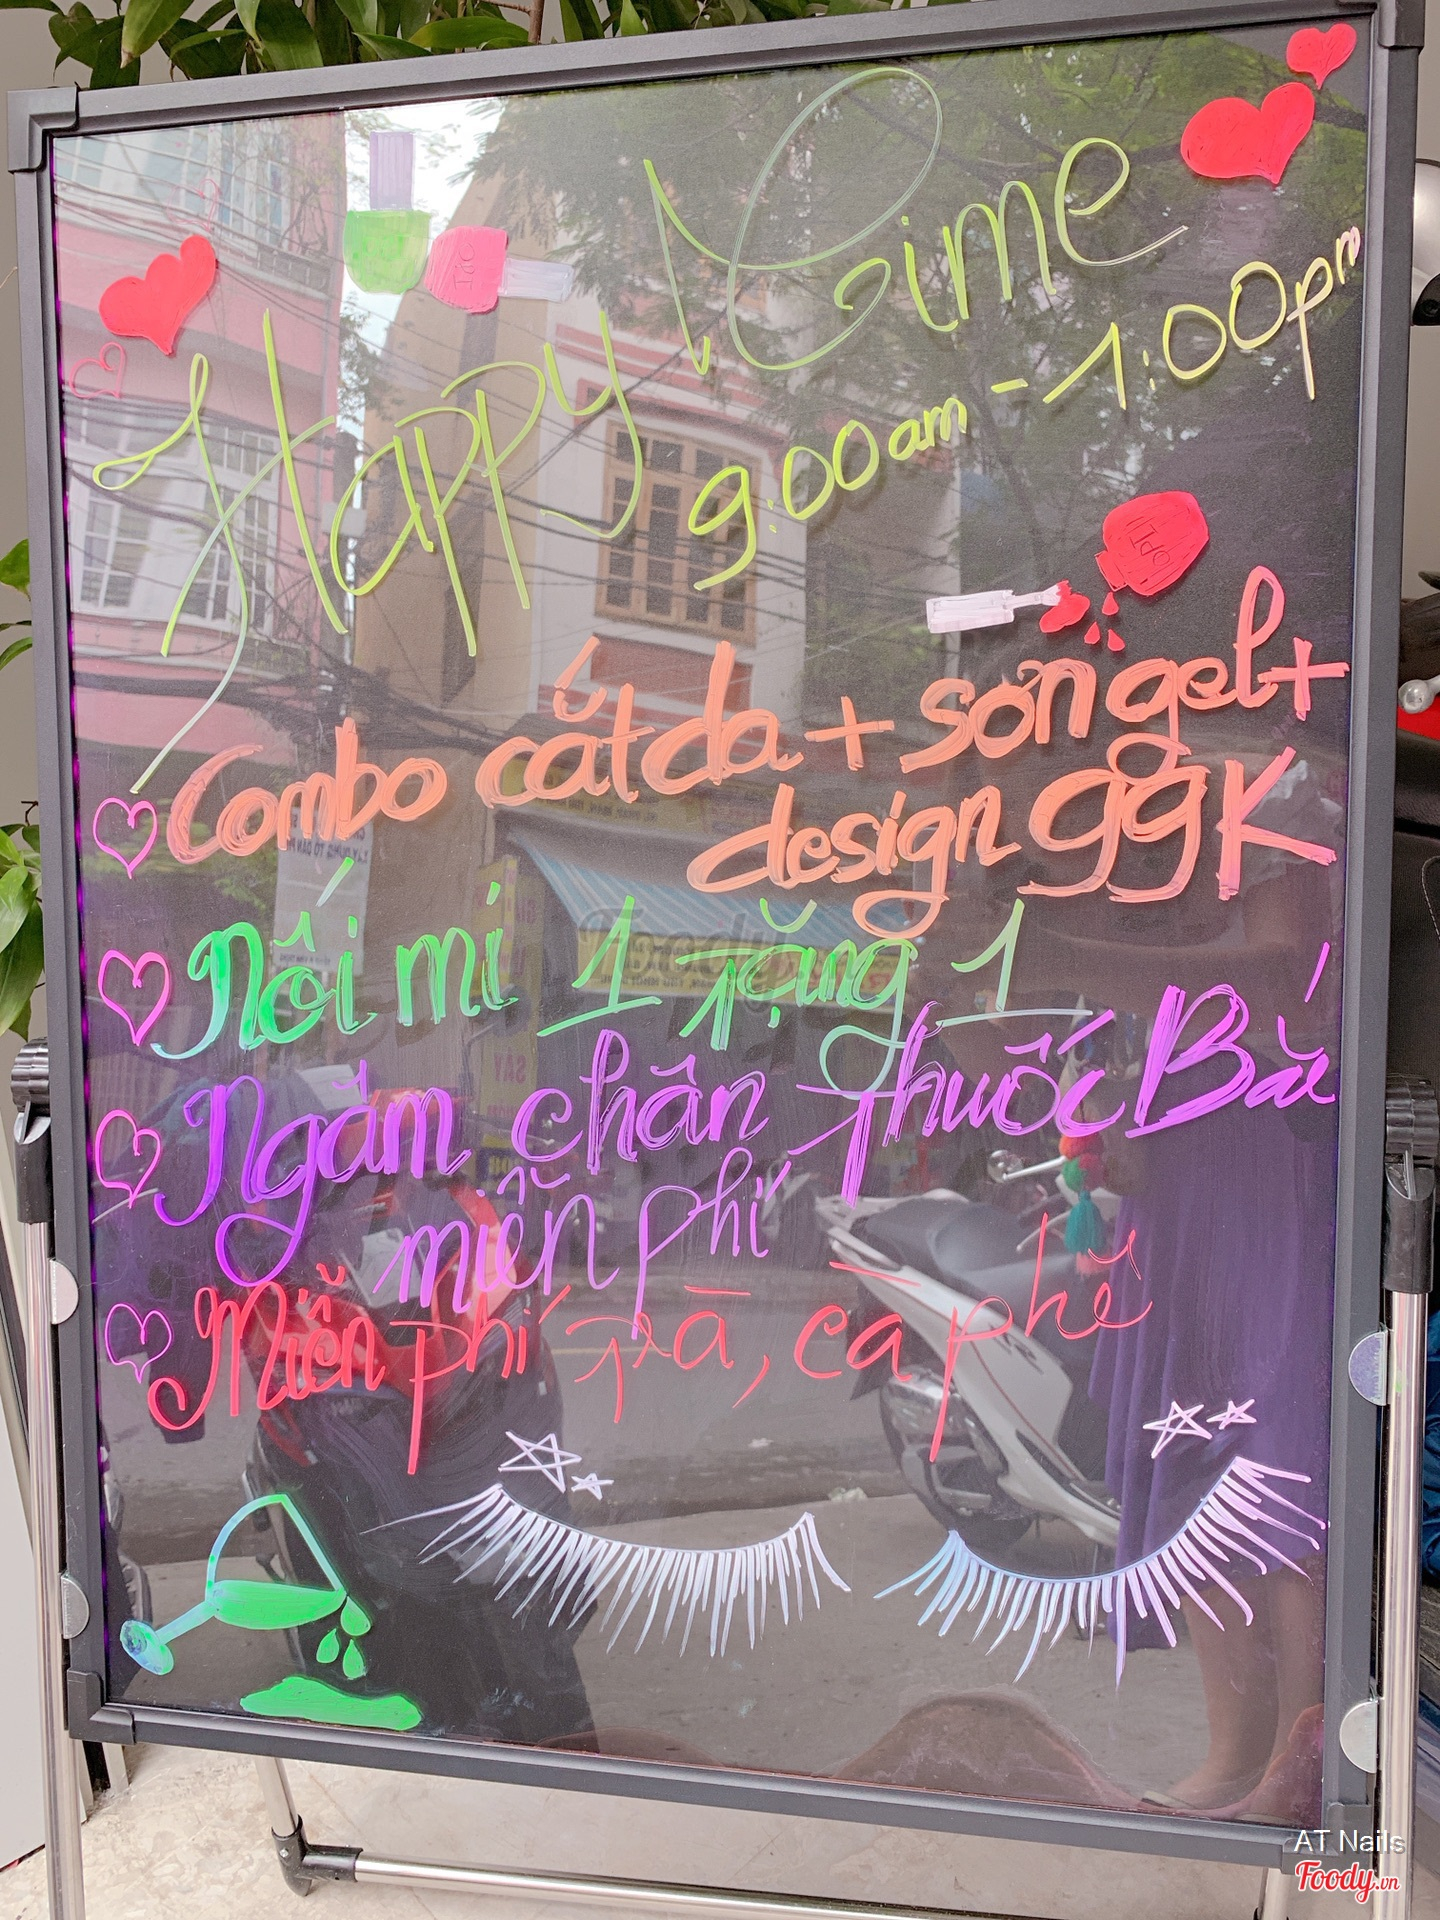 Happy Time
9:00am - 1:00pm
OPI
OPI
Combo cắt da + sơn gel +
design 99K
Nối mi 1 Tặng 1
Ngâm chân Thuốc Bắc
miễn phí
Miễn phí Trà, cà phê
AT Nails
Foody.vn